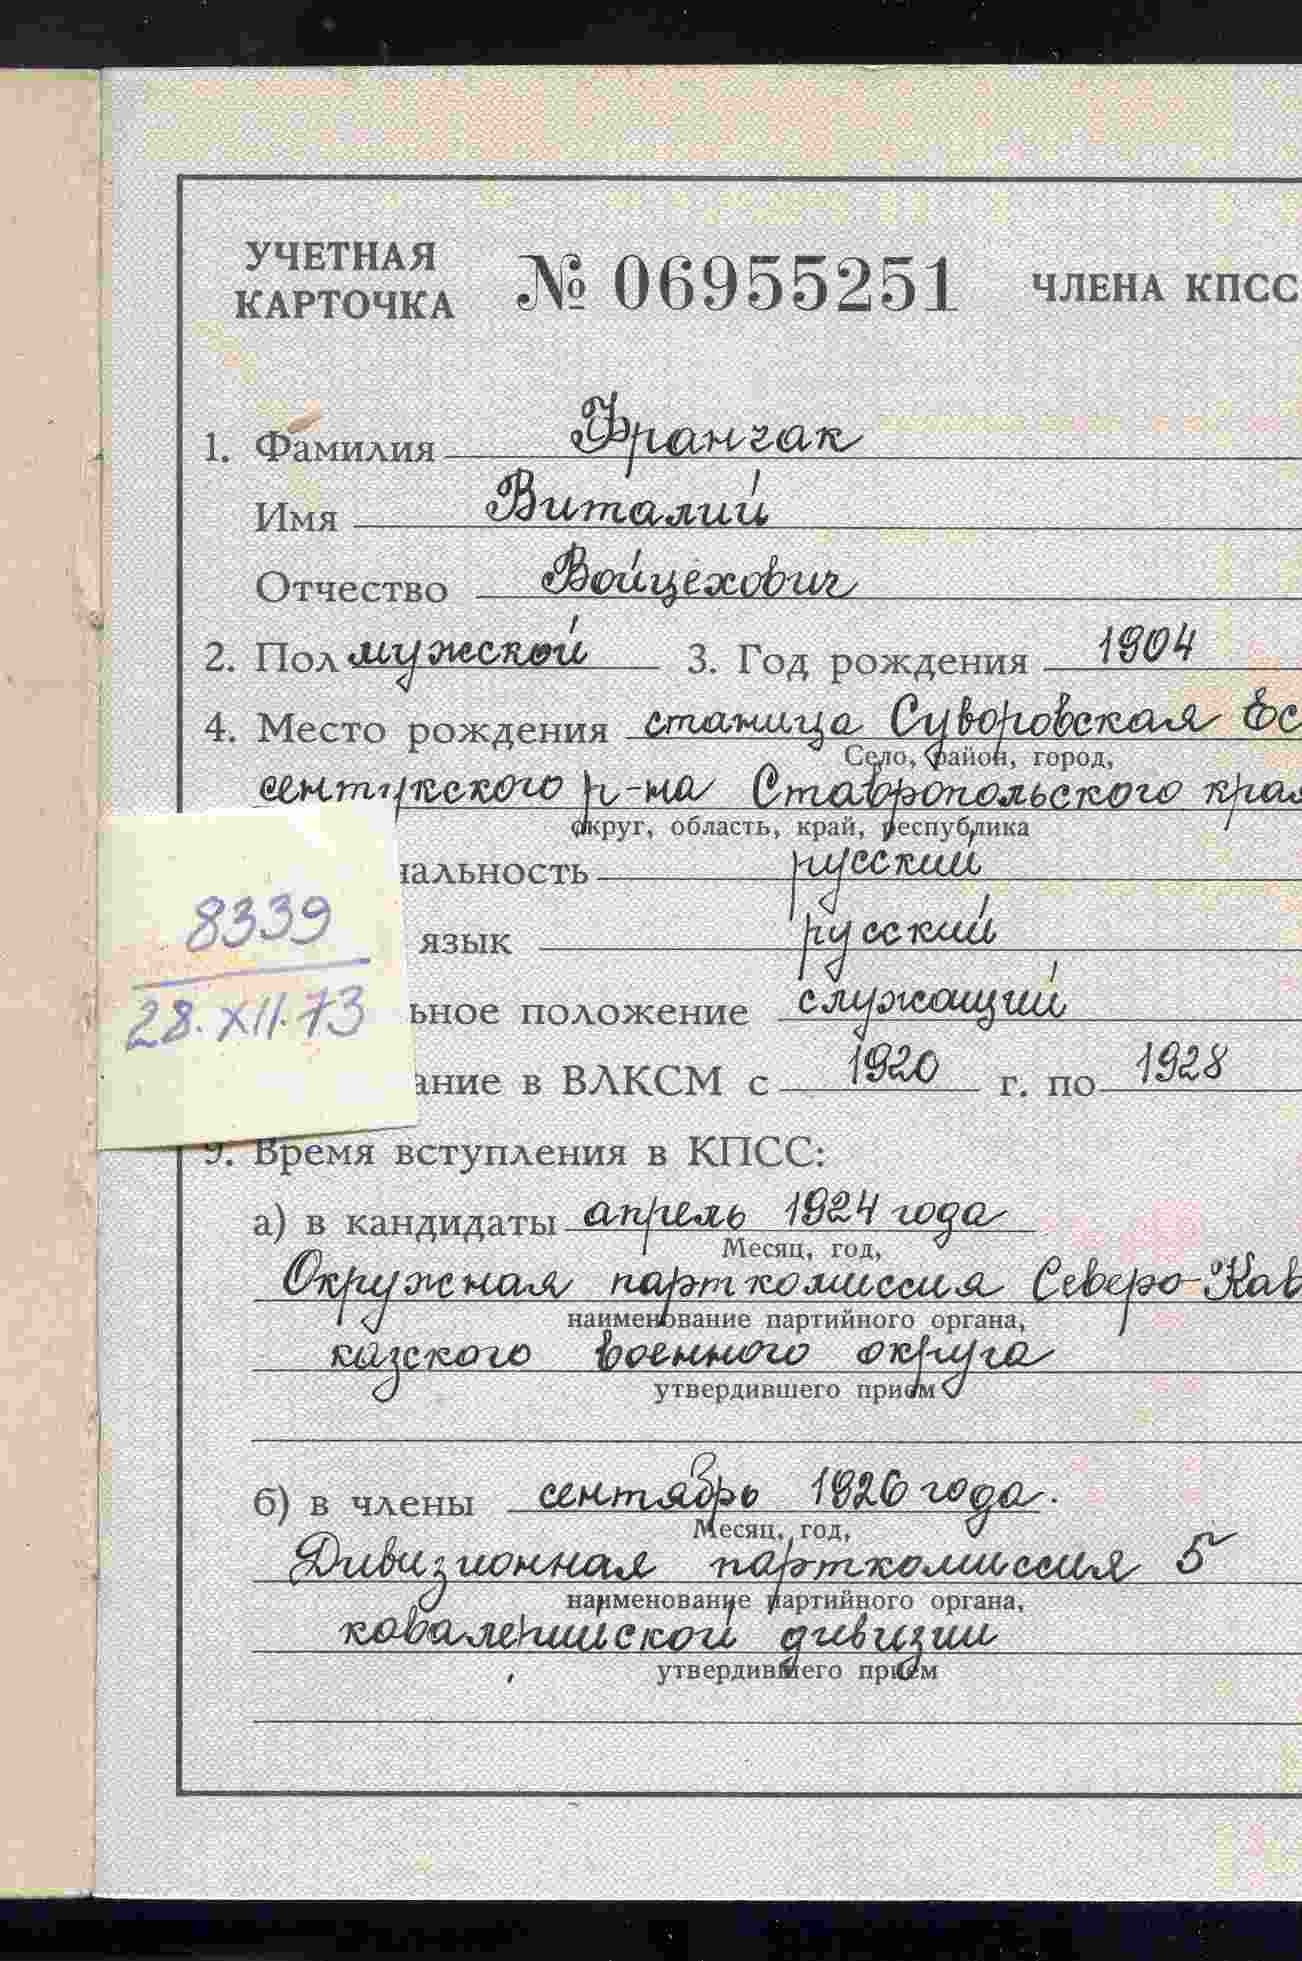 УЧЕТНАЯ КАРТОЧКА № 06955251 ЧЛЕНА КПСС
1. Фамилия Франчак
Имя Виталий
Отчество Войцехович
2. Пол мужской 3. Год рождения 1904
4. Место рождения станица Суворовская Ес
Село, район, город,
сентукского р-на Ставропольского края
округ, область, край, республика
нальность русский
8339
язык русский
28.XII.73
ьное положение служащий
ание в ВЛКСМ с 1920 г. по 1928
9. Время вступления в КПСС:
а) в кандидаты апрель 1924 года
Месяц, год,
Окружная парткомиссия Северо-Кав
наименование партийного органа,
казского военного округа
утвердившего прием
б) в члены сентябрь 1926 года.
Месяц, год,
Дивизионная парткомиссия 5
наименование партийного органа,
ковалерийской дивизии
утвердившего прием